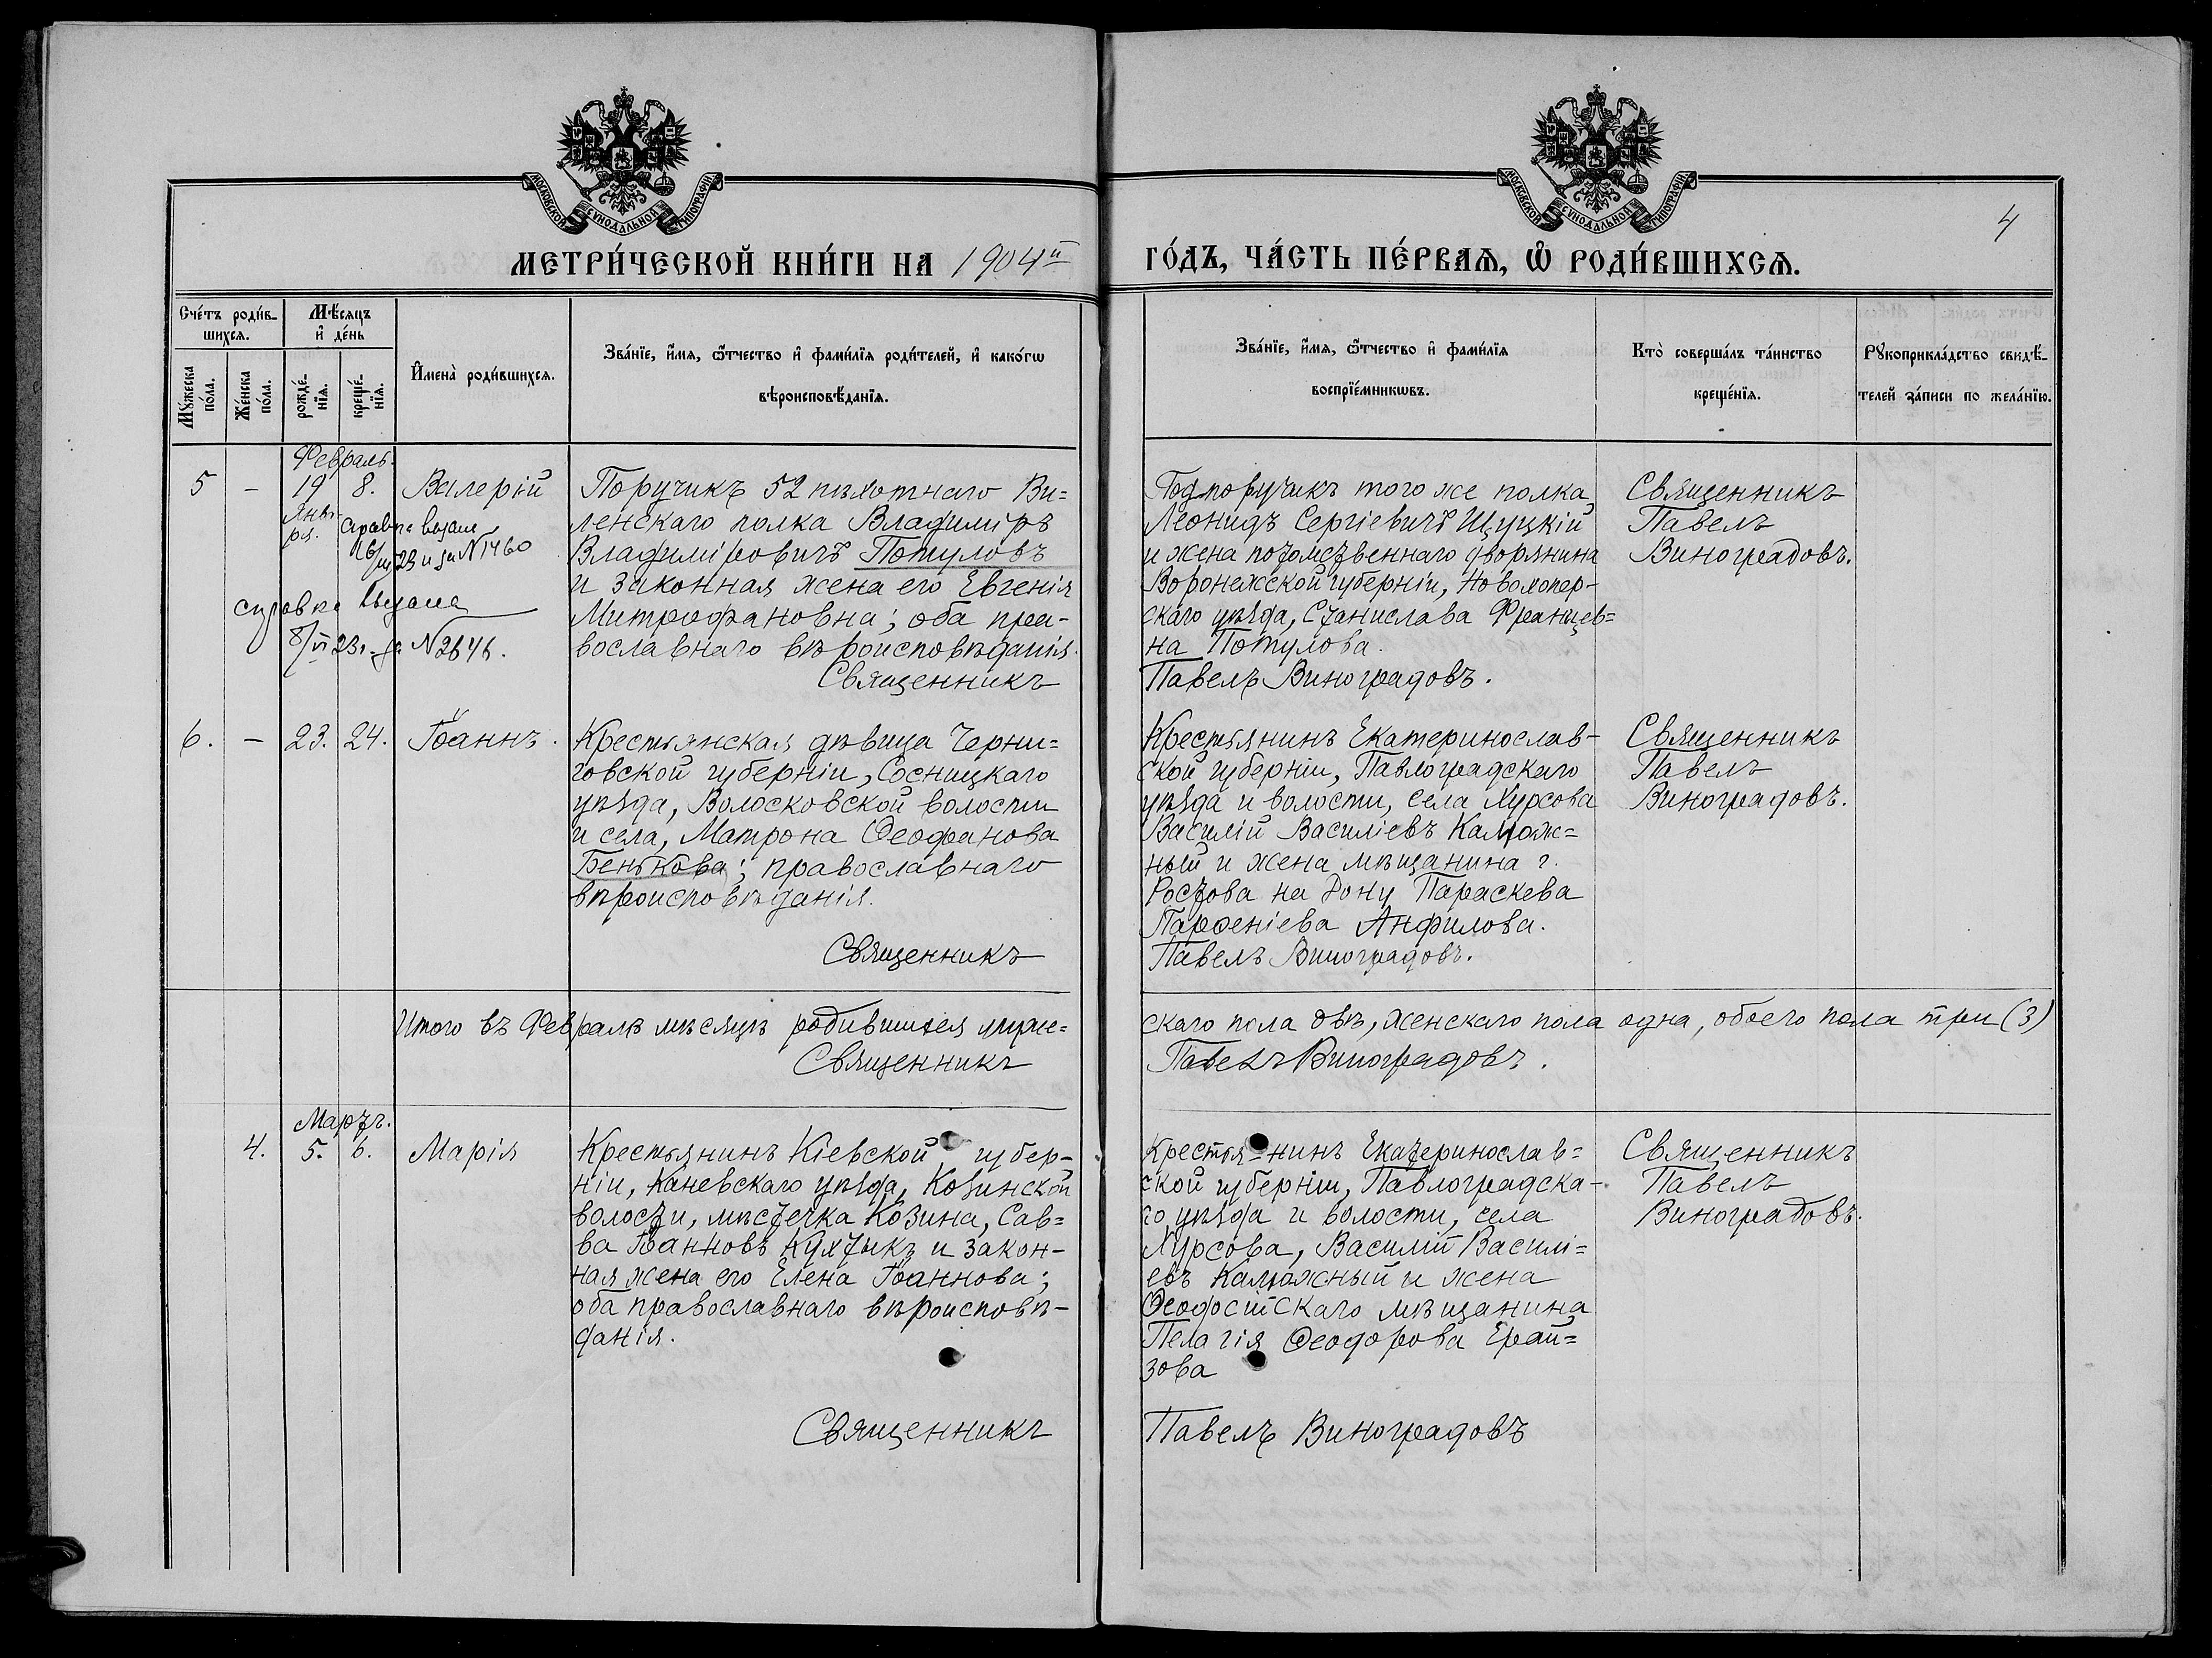 МОСКОВСКОЙ СУНОДАЛЬНОЙ ТИПОГРАФІИ
МОСКОВСКОЙ СУНОДАЛЬНОЙ ТИПОГРАФІИ
4
МЕТРИ́ЧЕСКОЙ КНИ́ГИ НА 1904й
ГО́ДЪ, ЧА́СТЬ ПЕ́РВАѦ, Ѡ҆ РОДИ́ВШИХСѦ.
Сче́тъ роди́в-
шихсѧ.
Мѣ́сѧцъ
и҆ де́нь
Мꙋ́жеска по́ла.
Же́нска по́ла.
рожде́-нїѧ.
креще́-нїѧ.
И҆мена̀ роди́вшихсѧ.
Зва́нїе, и҆́мѧ, ѻ҆́тчество и҆ фами́лїѧ роди́телей, и҆ како́гѡ
вѣроисповѣ́данїѧ.
Зва́нїе, и҆́мѧ, ѻ҆́тчество и҆ фами́лїѧ
воспрїе́мникѡвъ.
Кто̀ соверша́лъ та́инство
креще́нїѧ.
Рꙋкоприкла́дство свидѣ́-
телей за́писи по жела́нїю.
Февраль.
5 - 19 8. Валерій
Янва-
ря.
справка выдана
№ 1460
справка выдана
№ 2646.
Поручикъ 52 пѣхотнаго Ви=
ленскаго полка Владиміръ
Владиміровичъ Потуловъ
и законная жена его Евгенія
Митрофановна; оба пра-
вославнаго вѣроисповѣданія.
Священникъ
Подпоручикъ того же полка
Леонидъ Сергіевичъ Щуцкій
и жена потомственнаго дворянина
Воронежской губерніи, Новохопер-
скаго уѣзда, Станислава Францев=
на Потулова.
Павелъ Виноградовъ.
Священникъ
Павелъ
Виноградовъ.
6. - 23. 24. Іоаннъ.
Крестьянская дѣвица Черни=
говской губерніи, Сосницкаго
уѣзда, Волосковской волости
и села, Матрона Ѳеофанова
Бенькова; православнаго
вѣроисповѣданія.
Священникъ
Крестьянинъ Екатеринослав-
ской губерніи, Павлоградскаго
уѣзда и волости, села Хурсова
Василій Василіевъ Калюж=
ный и жена мѣщанина г.
Ростова на Дону Параскева
Парѳеніева Анфилова.
Павелъ Виноградовъ.
Священникъ
Павелъ
Виноградовъ.
Итого въ Февралѣ мѣсяцѣ родившихся муже=
скаго пола двѣ, женскаго пола одна, обоего пола три (3)
Священникъ
Павелъ Виноградовъ.
Мартъ.
4. 5. 6. Марія
Крестьянинъ Кіевской губер-
ніи, Каневскаго уѣзда, Козинской
волости, мѣстечка Козина, Сав=
ва Іоанновъ Кухтыкъ и закон-
ная жена его Елена Іоаннова;
оба православнаго вѣроисповѣ-
данія.
Священникъ
Крестья-нинъ Екатеринослав=
ской губерніи, Павлоградска-
го уѣзда и волости, села
Хурсова, Василій Василі=
евъ Калюжный и жена
Ѳеодосійскаго мѣщанина
Пелагія Ѳеодорова Ерай=
зова
Павелъ Виноградовъ
Священникъ
Павелъ
Виноградовъ.